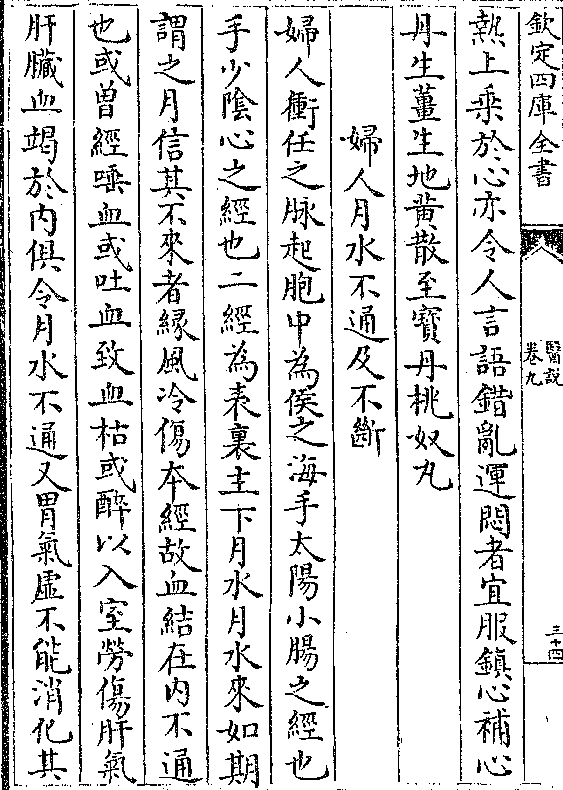 欽定四庫全書
醫說
卷九
三十四
熱上乗於心亦令人言語錯亂運悶者宜服鎮心補心
丹生薑生地黄散至寶丹桃奴丸
婦人月水不通及不斷
婦人衝任之脉起胞中為侯之海手太陽小腸之經也
手少陰心之經也二經為表裏主下月水月水來如期
謂之月信其不來者縁風冷傷本經故血結在内不通
也或曽經唾血或吐血致血枯或醉以入室勞傷肝氣
肝臓血竭於内俱令月水不通又胃氣虚不能消化其